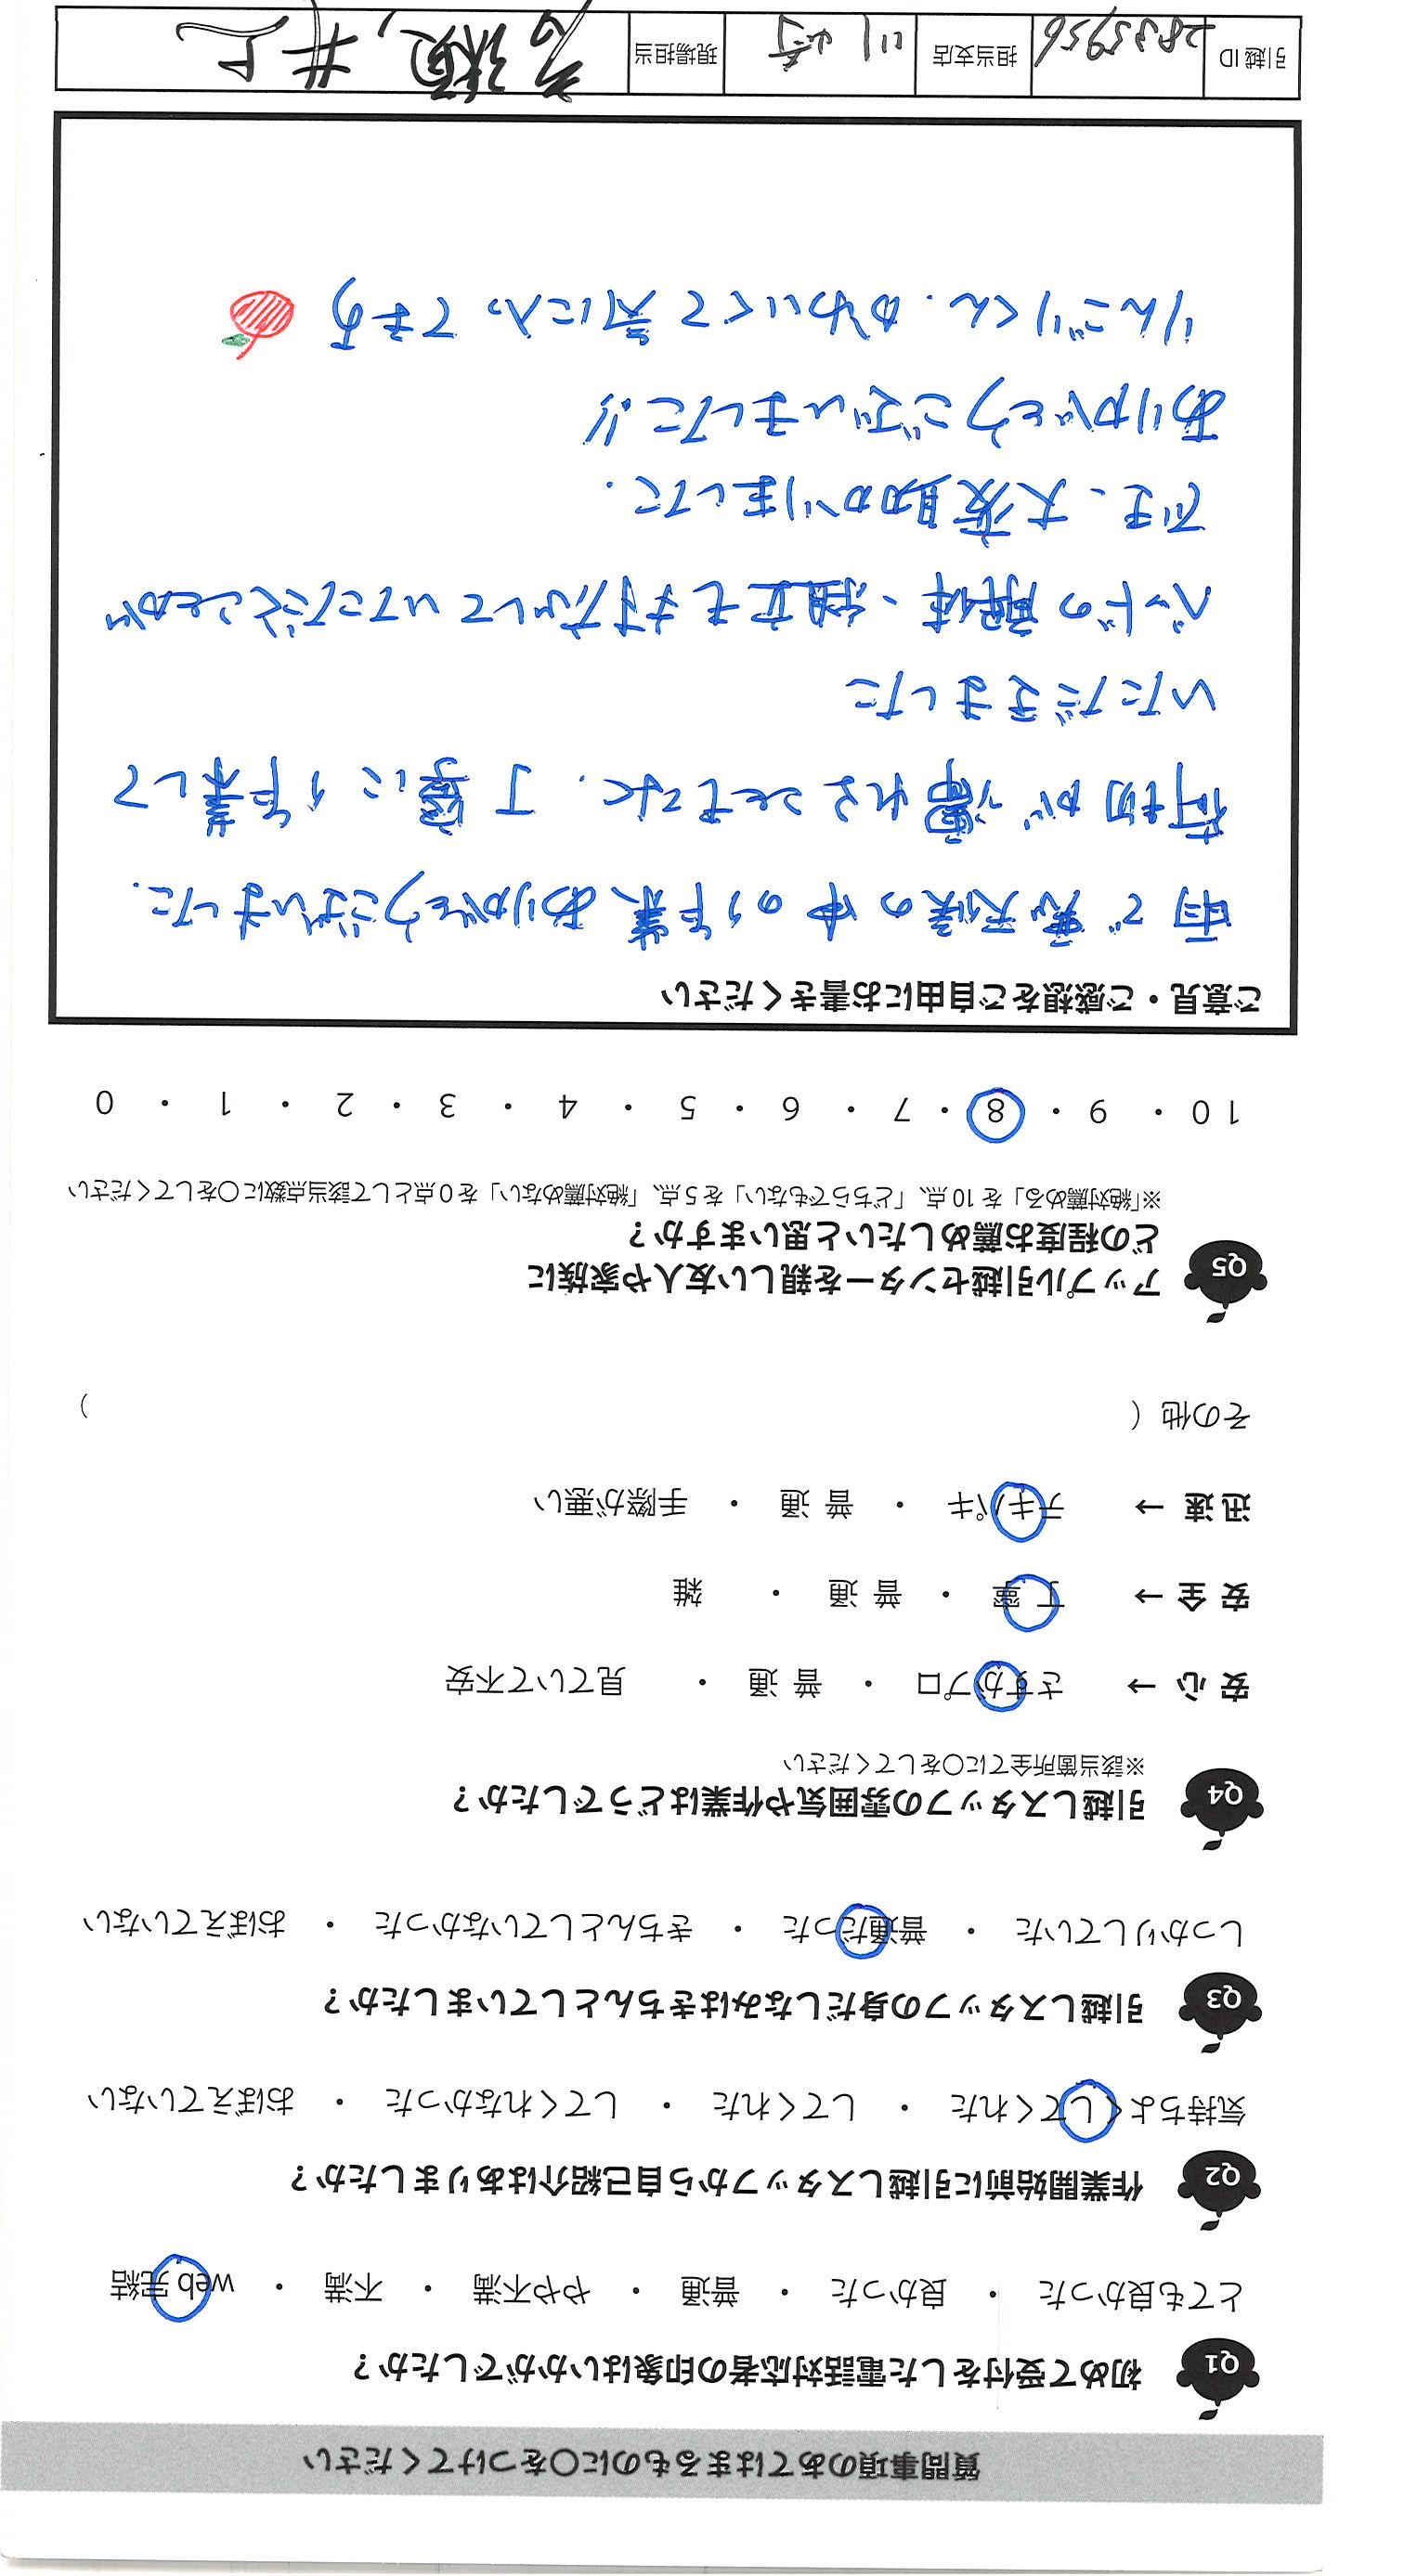 質問事項のあてはまるものに○をつけてください
Q1 初めて受付をした電話対応者の印象はいかがでしたか？
とても良かった ・ 良かった ・ 普通 ・ やや不満 ・ 不満 ・ web 完結
Q2 作業開始前に引越しスタッフから自己紹介はありましたか？
気持ちよくしてくれた ・ してくれた ・ してくれなかった ・ おぼえていない
Q3 引越しスタッフの身だしなみはきちんとしていましたか？
しっかりしていた ・ 普通だった ・ きちんとしていなかった ・ おぼえていない
Q4 引越しスタッフの雰囲気や作業はどうでしたか？
※該当箇所全てに○をしてください
安 心 → さすがプロ ・ 普 通 ・ 見ていて不安
安 全 → 丁 寧 ・ 普 通 ・ 雑
迅 速 → テキパキ ・ 普 通 ・ 手際が悪い
その他（ ）
Q5 アップル引越センターを親しい友人や家族に
どの程度お薦めしたいと思いますか？
※「絶対薦める」を 10 点、「どちらでもない」を 5 点、「絶対薦めない」を 0 点として該当点数に○をしてください
10 ・ 9 ・ 8 ・ 7 ・ 6 ・ 5 ・ 4 ・ 3 ・ 2 ・ 1 ・ 0
ご意見・ご感想をご自由にお書きください
雨で悪天候の中の作業、ありがとうございました.
荷物が濡れることもなく、丁寧に作業して
いただきました
ベッドの解体、組立もすべてしていただくことが
でき、大変助かりました.
ありがとうございました!!
りんごりくん、かわいくて気に入ってます
引越 ID 2835956 担当支店 川崎 現場担当 高瀬, 井上